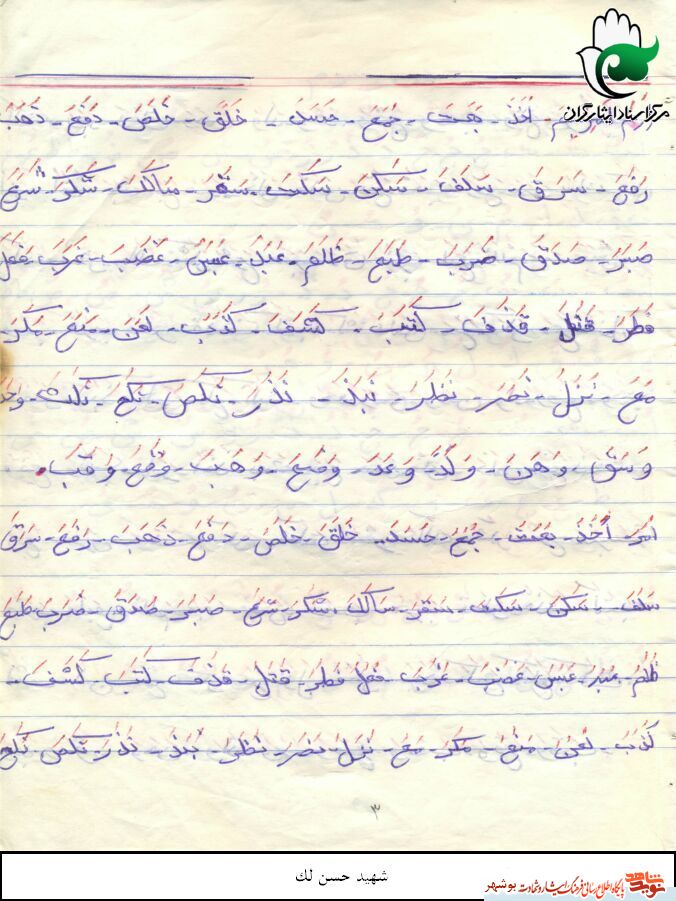 مرکز اسناد ایثارگران
اَخَذَ - بَعَثَ - جَمَعَ - حَسَدَ - خَلَقَ - خَلَصَ - دَفَعَ - ذَهَبَ
رَفَعَ - سَرَقَ - سَلَفَ - سَكَنَ - سَكَتَ - سَقَرَ - سَالَكَ - شَكَرَ - شَرَعَ
صَبَرَ - صَدَقَ - ضَرَبَ - طَبَعَ - ظَلَمَ - عَبَدَ - عَبَسَ - غَضَبَ - غَرَبَ - فَعَلَ
فَطَرَ - قَتَلَ - قَذَفَ - كَتَبَ - كَشَفَ - كَذَبَ - لَعَنَ - مَنَعَ - مَكَرَ
مَعَ - نَزَلَ - نَصَرَ - نَظَرَ - نَبَذَ - نَذَرَ - نَكَصَ - نَكَحَ - نَكَثَ
وَسَقَ - وَهَنَ - وَلَدَ - وَعَدَ - وَضَعَ - وَهَبَ - وَقَعَ - وَقَبَ.
اَمَرَ - اَخَذَ - بَعَثَ - جَمَعَ - حَسَدَ - خَلَقَ - خَلَصَ - دَفَعَ - ذَهَبَ - رَفَعَ - سَرَقَ
سَلَفَ - سَكَنَ - سَكَتَ - سَقَرَ - سَالَكَ - شَكَرَ - شَرَعَ - صَبَرَ - صَدَقَ - ضَرَبَ - طَبَعَ
ظَلَمَ - عَبَدَ - عَبَسَ - غَضَبَ - غَرَبَ - فَعَلَ - فَطَرَ - قَتَلَ - قَذَفَ - كَتَبَ - كَشَفَ -
كَذَبَ - لَعَنَ - مَنَعَ - مَكَرَ - مَعَ - نَزَلَ - نَصَرَ - نَظَرَ - نَبَذَ - نَذَرَ - نَكَصَ - نَكَحَ
۳
شهید حسن لك
نوید شاهد پایگاه اطلاع رسانی فرهنگ ایثار و شهادت بوشهر